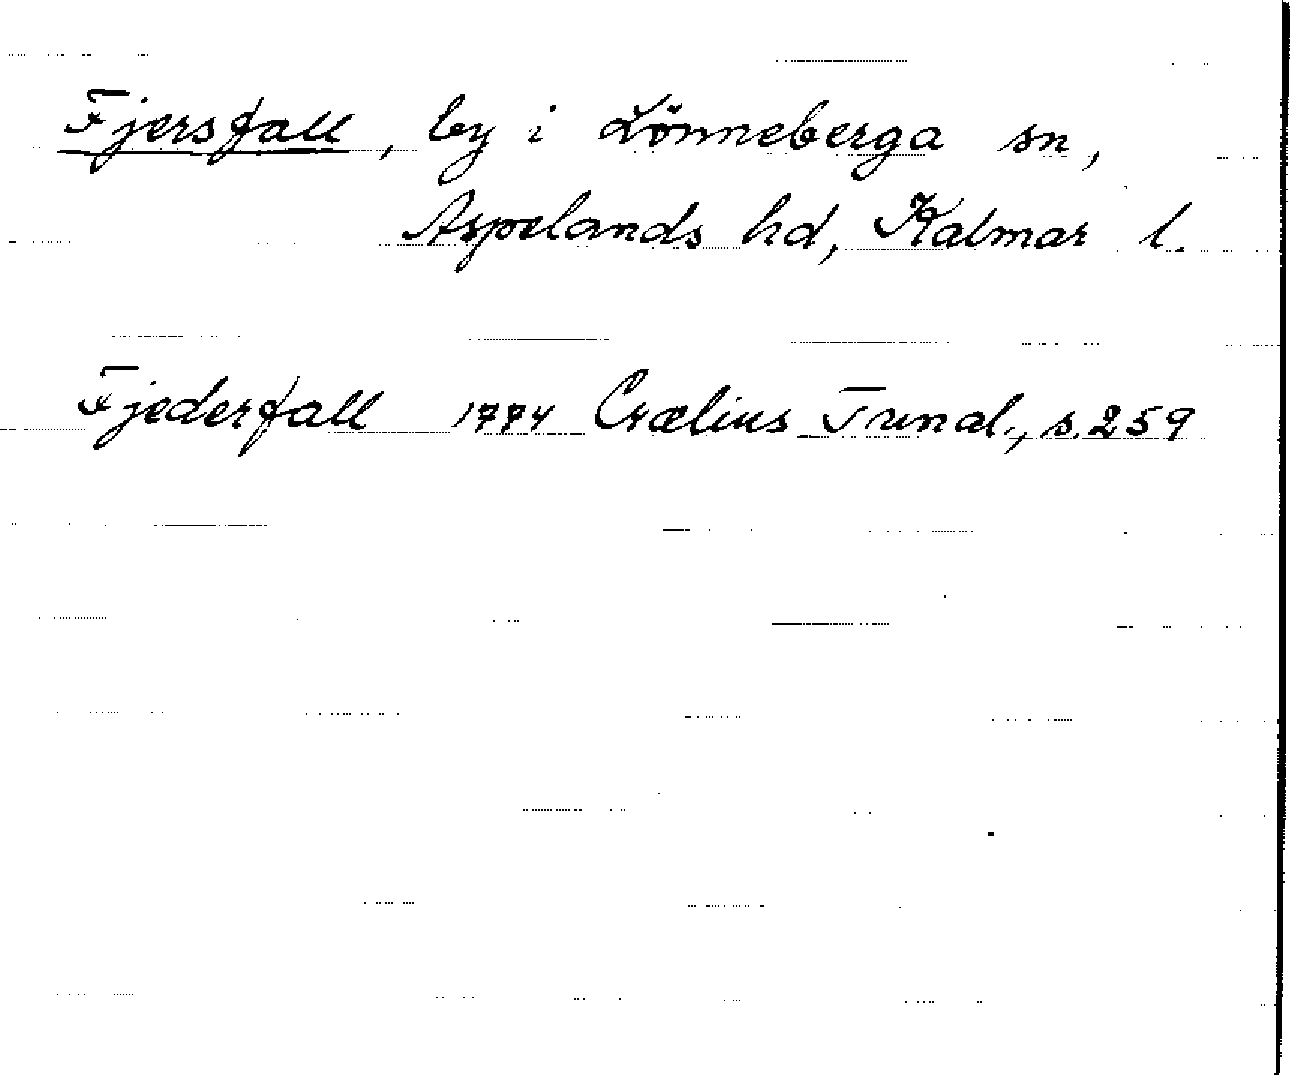 Fjersfall, by i Lönneberga sn,
Aspelands hd, Kalmar l.
Fjederfall 1774 Crælius Tunal., s. 259